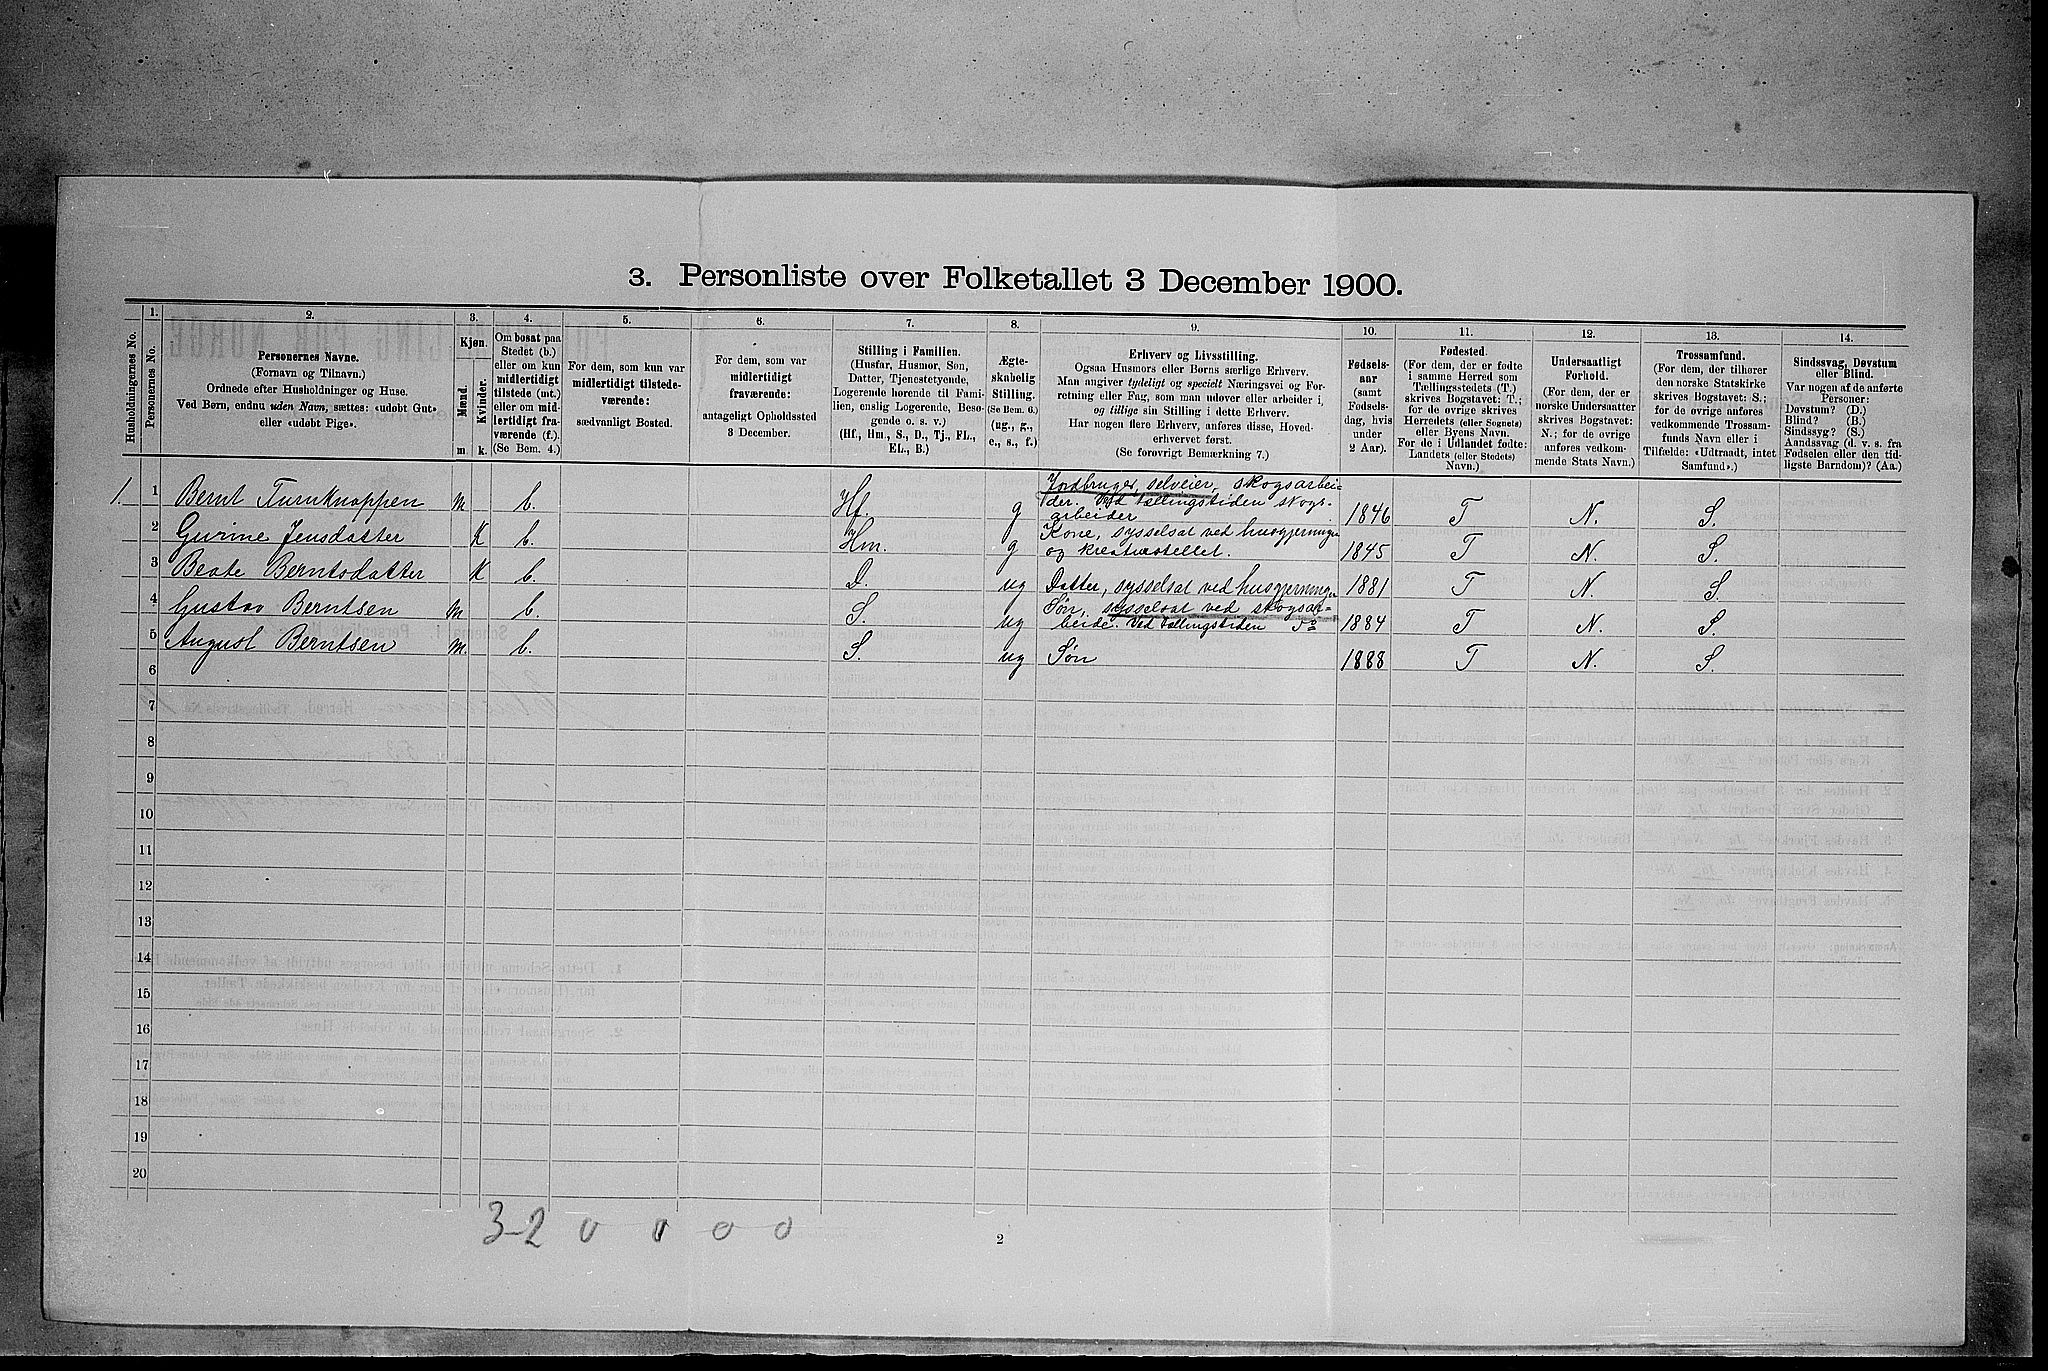 3. Personliste over Folketallet 3 December 1900.
1. 2. 3. 4. 5. 6. 7. 8. 9. 10. 11. 12. 13. 14.
Husholdningernes No.
Personernes No.
Personernes Navne.
(Fornavn og Tilnavn.)
Ordnede efter Husholdninger og Huse.
Ved Børn, endnu uden Navn, sættes: «udøbt Gut»
eller «udøbt Pige».
Kjøn.
Mænd.
Kvinder.
m. k.
Om bosat paa
Stedet (b.)
eller om kun
midlertidigt
tilstede (mt.)
eller om mid-
lertidigt fra-
værende (f.).
(Se Bem. 4.)
For dem, som kun var
midlertidigt tilstede-
værende:
sædvanligt Bosted.
For dem, som var
midlertidigt
fraværende:
antageligt Opholdssted
3 December.
Stilling i Familien.
(Husfar, Husmor, Søn,
Datter, Tjenestetyende,
Logerende hørende til Fami-
lien, enslig Logerende, Besø-
gende o. s. v.)
(Hf., Hm., S., D., Tj., FL.,
EL., B.)
Ægte-
skabelig
Stilling.
(Se Bem. 6.)
(ug., g.,
e., s., f.)
Erhverv og Livsstilling.
Ogsaa Husmors eller Børns særlige Erhverv.
Man angiver tydeligt og specielt Næringsvei og For-
retning eller Fag, som man udøver eller arbeider i,
og tillige sin Stilling i dette Erhverv.
Har nogen flere Erhverv, anføres disse, Hoved-
erhvervet først.
(Se forøvrigt Bemærkning 7.)
Fødsels-
aar
(samt
Fødsels-
dag, hvis
under
2 Aar).
Fødested.
(For dem, der er fødte
i samme Herred som
Tællingsstedets (T.)
skrives Bogstavet: T.;
for de øvrige skrives
Herredets (eller Sognets)
eller Byens Navn.
For de i Udlandet fødte:
Landets (eller Stedets)
Navn.)
Undersaatligt
Forhold.
(For dem, der er
norske Undersaatter
skrives Bogstavet:
N.; for de øvrige
anføres vedkom-
mende Stats Navn.)
Trossamfund.
(For dem, der tilhører
den norske Statskirke
skrives Bogstavet: S.;
for de øvrige anføres
vedkommende Trossam-
funds Navn eller i
Tilfælde: «Udtraadt, intet
Samfund».)
Sindssvag, Døvstum
eller Blind.
Var nogen af de anførte
Personer:
Døvstum? (D.)
Blind? (B.)
Sindssyg? (S.)
Aandssvag (d. v. s. fra
Fødselen eller den tid-
ligste Barndom)? (Aa.)
1. 1 Bernt Turnknappen m b. Hf. g Jordbruger, selveier, skogsarbei-
der. Ved tællingstiden skogs-
arbeider 1846 T N. S.
2 Gurine Jensdatter K b. Hm. g Kone, sysselsat ved husgjerninger
og kreaturstellet. 1845 T N. S.
3 Beate Berntsdatter K b. D. ug Datter, sysselsat ved husgjerninger 1881 T N. S.
4 Gustav Berntsen m b. S. ug Søn, sysselsat ved skogsar-
beide. Ved tællingstiden 1884 T N. S.
5 August Berntsen m. b. S. ug Søn 1888 T N. S.
6
7
8
9
10
11
12
13
14
15
16
17
18
19
20
3-2 0 1 0 0
2